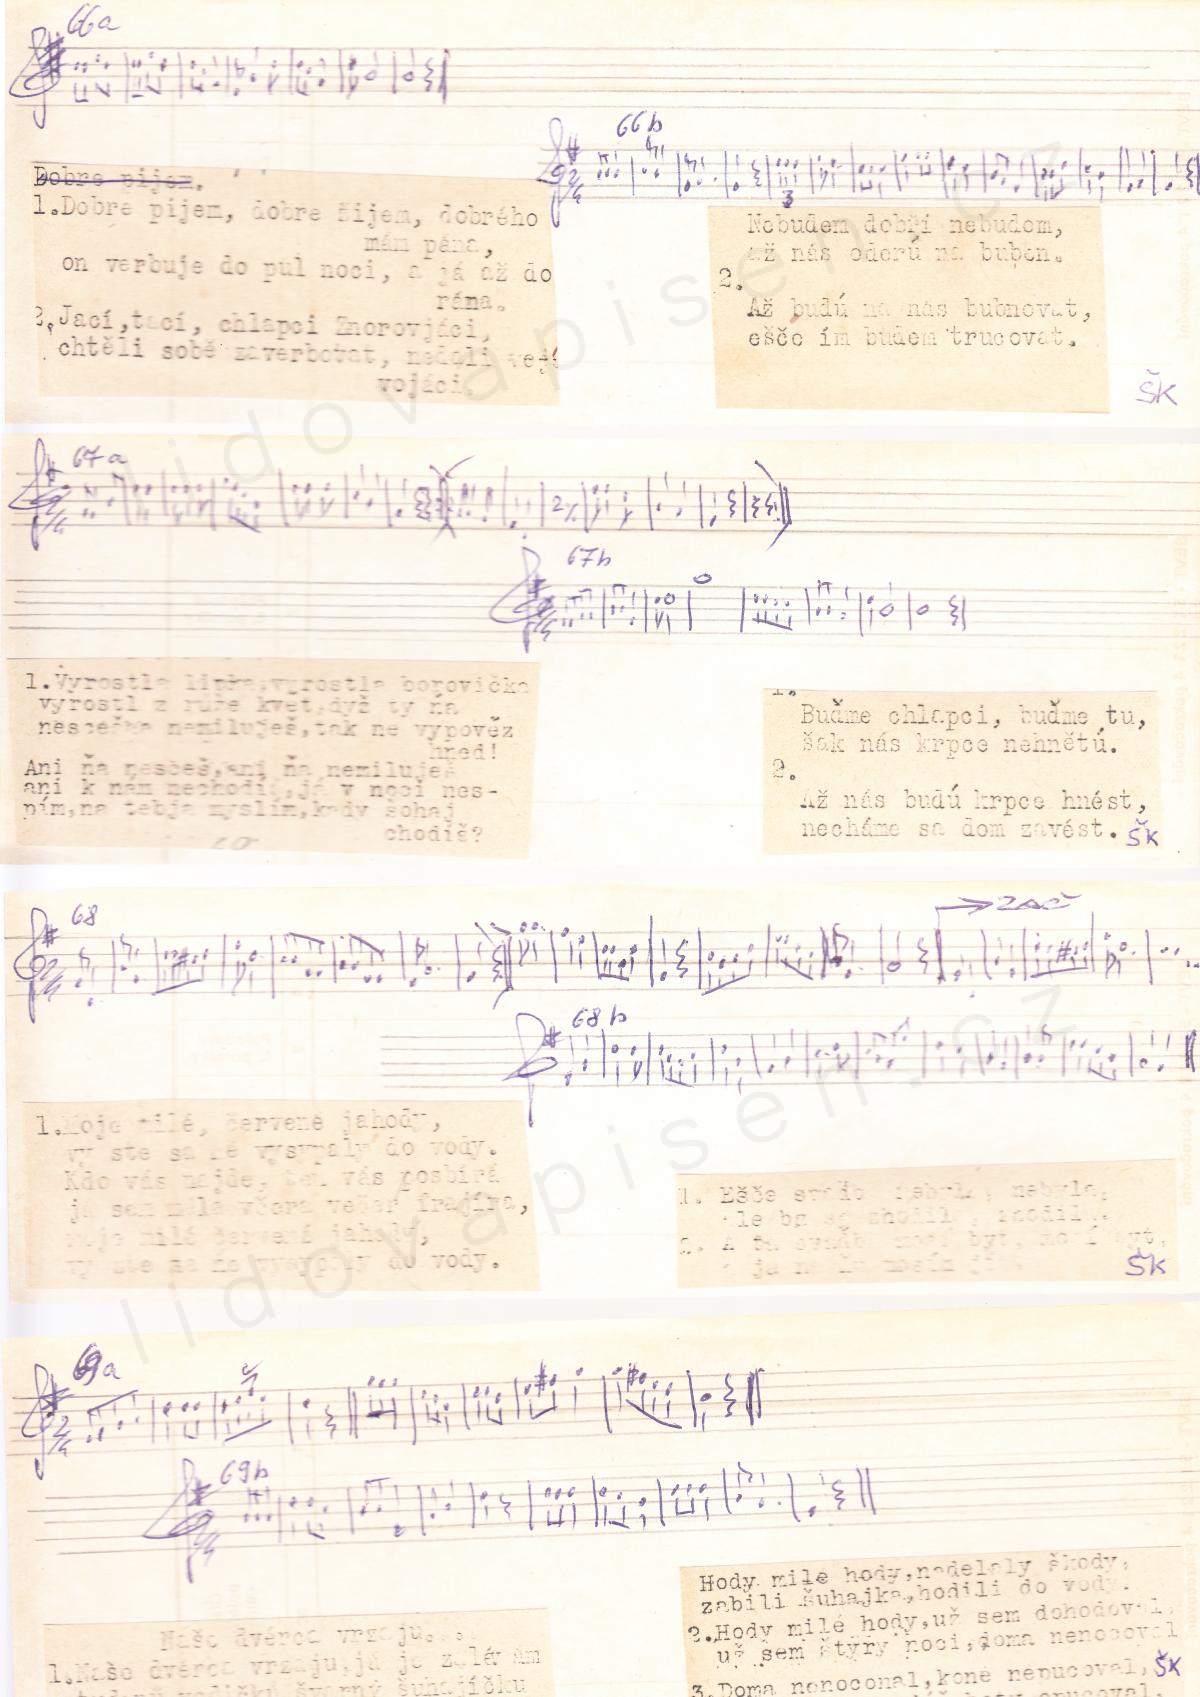 66a
66b
3
Dobre pijem.
1.Dobre pijem, dobre žijem, dobrého
mám pána,
on verbuje do pul noci, a já až do
rána.
2.Jací,tací, chlapci Znorovjáci,
chtěli sobě zaverbovat, nedali
vojáci.
Nebudem dobří nebudom,
až nás oderú na buben.
2.
Až budú na nás bubnovat,
eščo ím budem trucovat.
ŠK
67a
67b
1.Vyrostla lipka,vyrostla borovička
vyrostl z růže kvet,dyž ty ňa
nesceš nemiluješ,tak ne vypověz
hned!
Ani ňa nesceš,ani ňa nemiluješ
ani k nám nechodíš,já v noci nes-
pím,na tebja myslím,kady šohaj
chodíš?
1.
Buďme chlapci, buďme tu,
šak nás krpce nehnětú.
2.
Až nás budú krpce hnést,
necháme sa dom zavést.
ŠK
68
ZAČ
68b
1.Moje milé, červené jahody,
vy ste sa ně vysypaly do vody.
Kdo vás najde, ten vás posbírá
já sem měla včera večer frajíra,
moje milé červené jahody,
vy ste sa ně vysypaly do vody.
1. Ešče svadba nebyla, nebyla,
2. A ta svadba mosí byt, mosí byt,
ŠK
69a
69b
Naše dvérca vrzaju.
1.Naše dvérca vrzaju,já je zalévám
švarný šuhajíčku
Hody milé hody,nadelaly škody,
zabili šuhajka,hodili do vody.
2.Hody milé hody,už sem dohodoval,
už sem štyry noci,doma nenocoval
3.Doma nenoconal,koně nepucoval,
ŠK
lidovapisen.cz
lidovapisen.cz